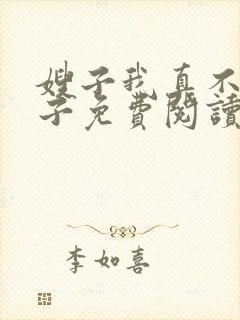 嫂子我真不
子免費閱讀
李如喜